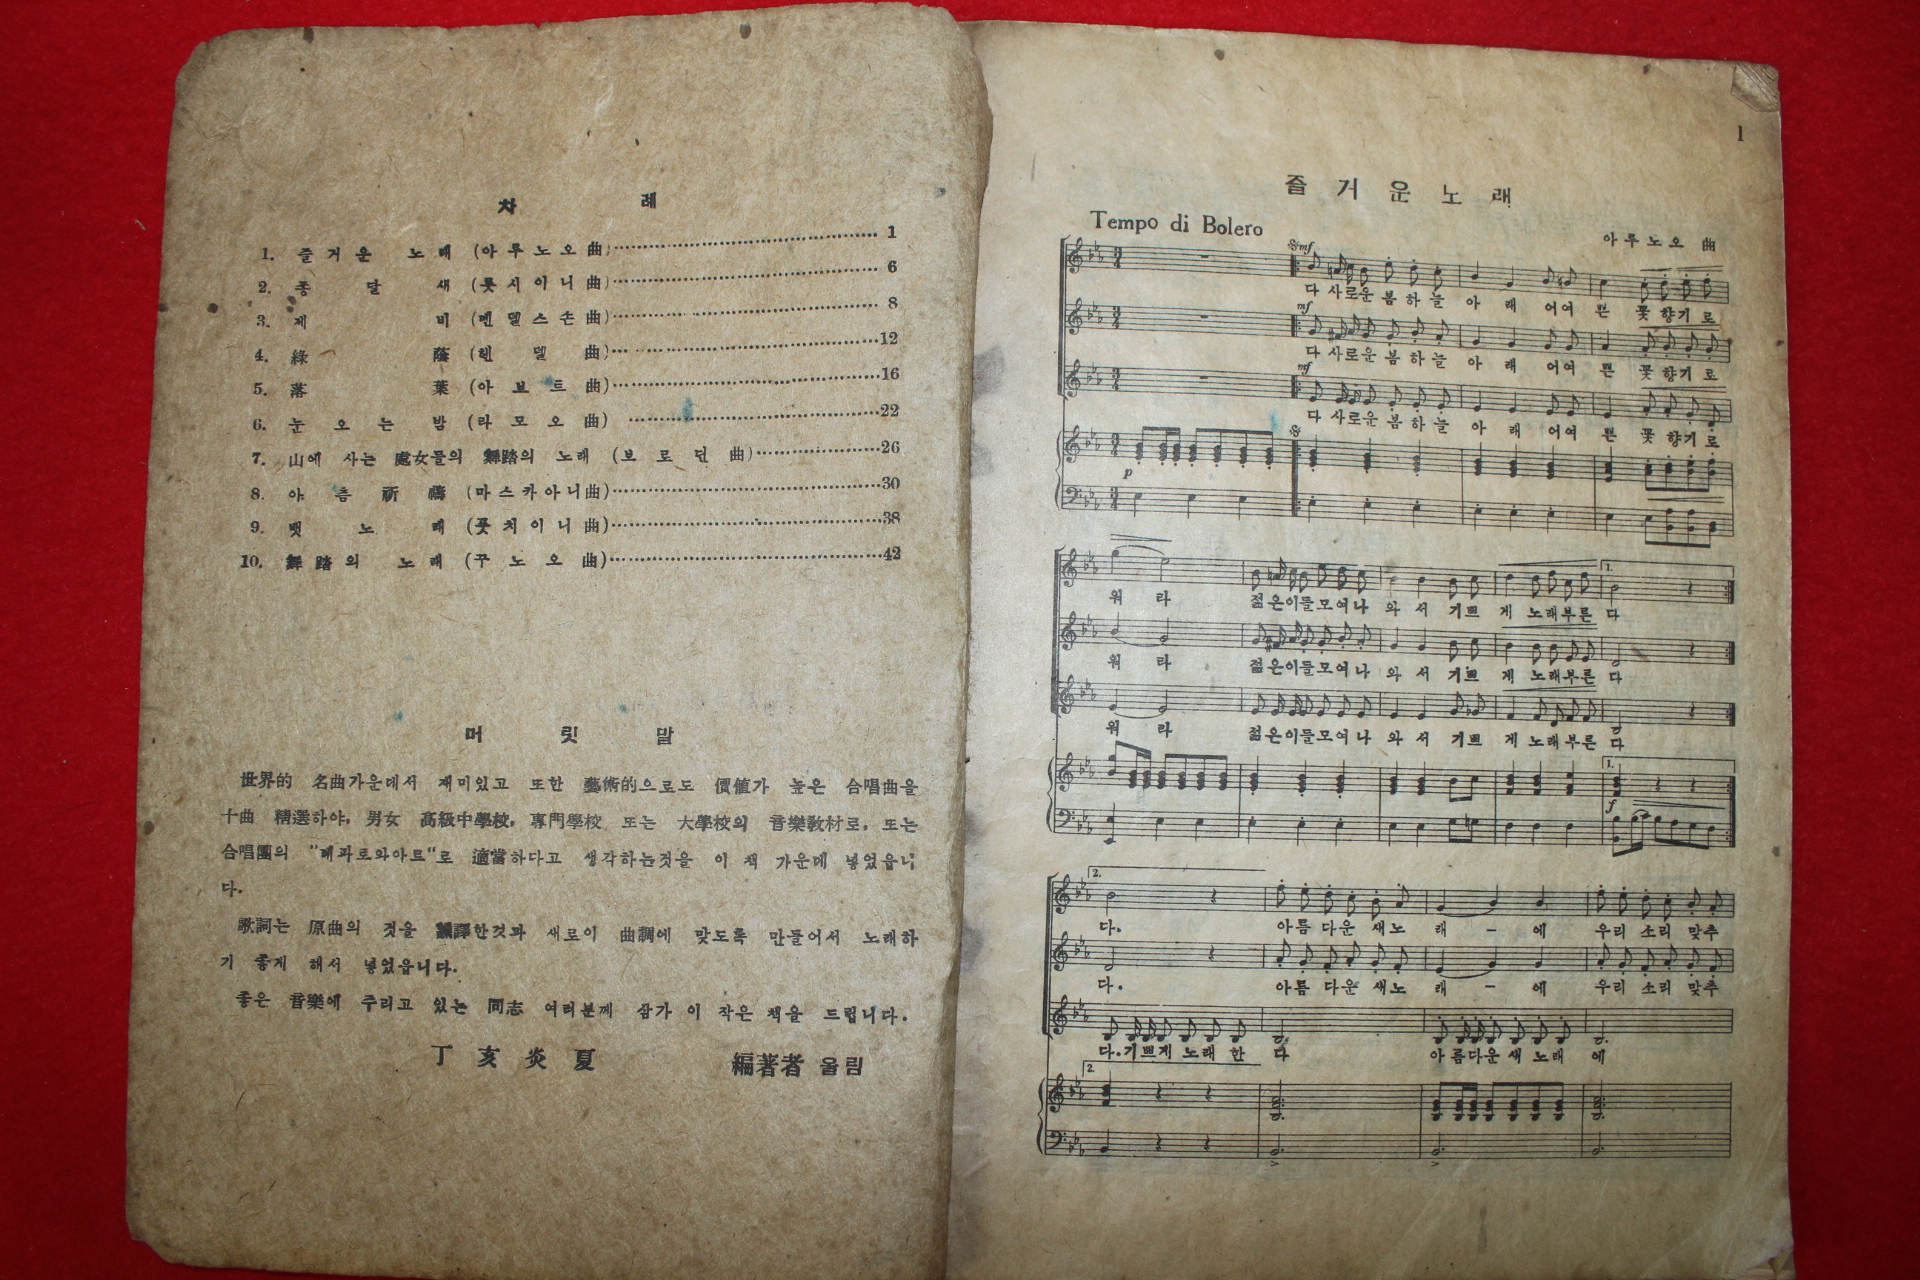 차 례
1. 즐거운 노래 (아루노오 曲) 1
2. 종달새 (롯시이니 曲) 6
3. 제비 (멘델스손 曲) 8
4. 綠蔭 (헨델 曲) 12
5. 落葉 (아보트 曲) 16
6. 눈오는밤 (라모오 曲) 22
7. 山에 사는 處女들의 舞踏의 노래 (보로딘 曲) 26
8. 아츰 祈禱 (마스카아니 曲) 30
9. 뱃노래 (풋치이니 曲) 38
10. 舞踏의 노래 (구노오 曲) 42
머 릿 말
世界的 名曲가운데서 재미있고 또한 藝術的으로도 價値가 높은 合唱曲을
十曲 精選하야, 男女 高級中學校, 専門學校 또는 大學校의 音樂敎材로, 또는
合唱團의 "레파토와아트"로 適當하다고 생각하는것을 이 책 가운데 넣었읍니
다.
歌詞는 原曲의 것을 飜譯한것과 새로이 曲調에 맞도록 만들어서 노래하
기 좋게 해서 넣었읍니다.
좋은 音樂에 주리고 있는 同志 여러분께 삼가 이 작은 책을 드립니다.
丁亥炎夏 編著者 울림
1
즐거운노래
Tempo di Bolero
아루노오 曲
mf
다사로운봄하늘 아 래 어여 쁜 꽃향기로
mf
다사로운봄하늘 아 래 어여 쁜 꽃향기로
mf
다사로운봄하늘 아 래 어여 쁜 꽃향기로
p
1.
워 라 젊은이들모여나 와 서 기쁘 게 노래부른 다
워 라 젊은이들모여나 와 서 기쁘 게 노래부른 다
워 라 젊은이들모여나 와 서 기쁘 게 노래부른 다
1.
f
2.
다. 아름다운새노 래 - 에 우리소리맞추
다. 아름다운새노 래 - 에 우리소리맞추
다.기쁘게 노래 한 다 아름다운새노래 에
2